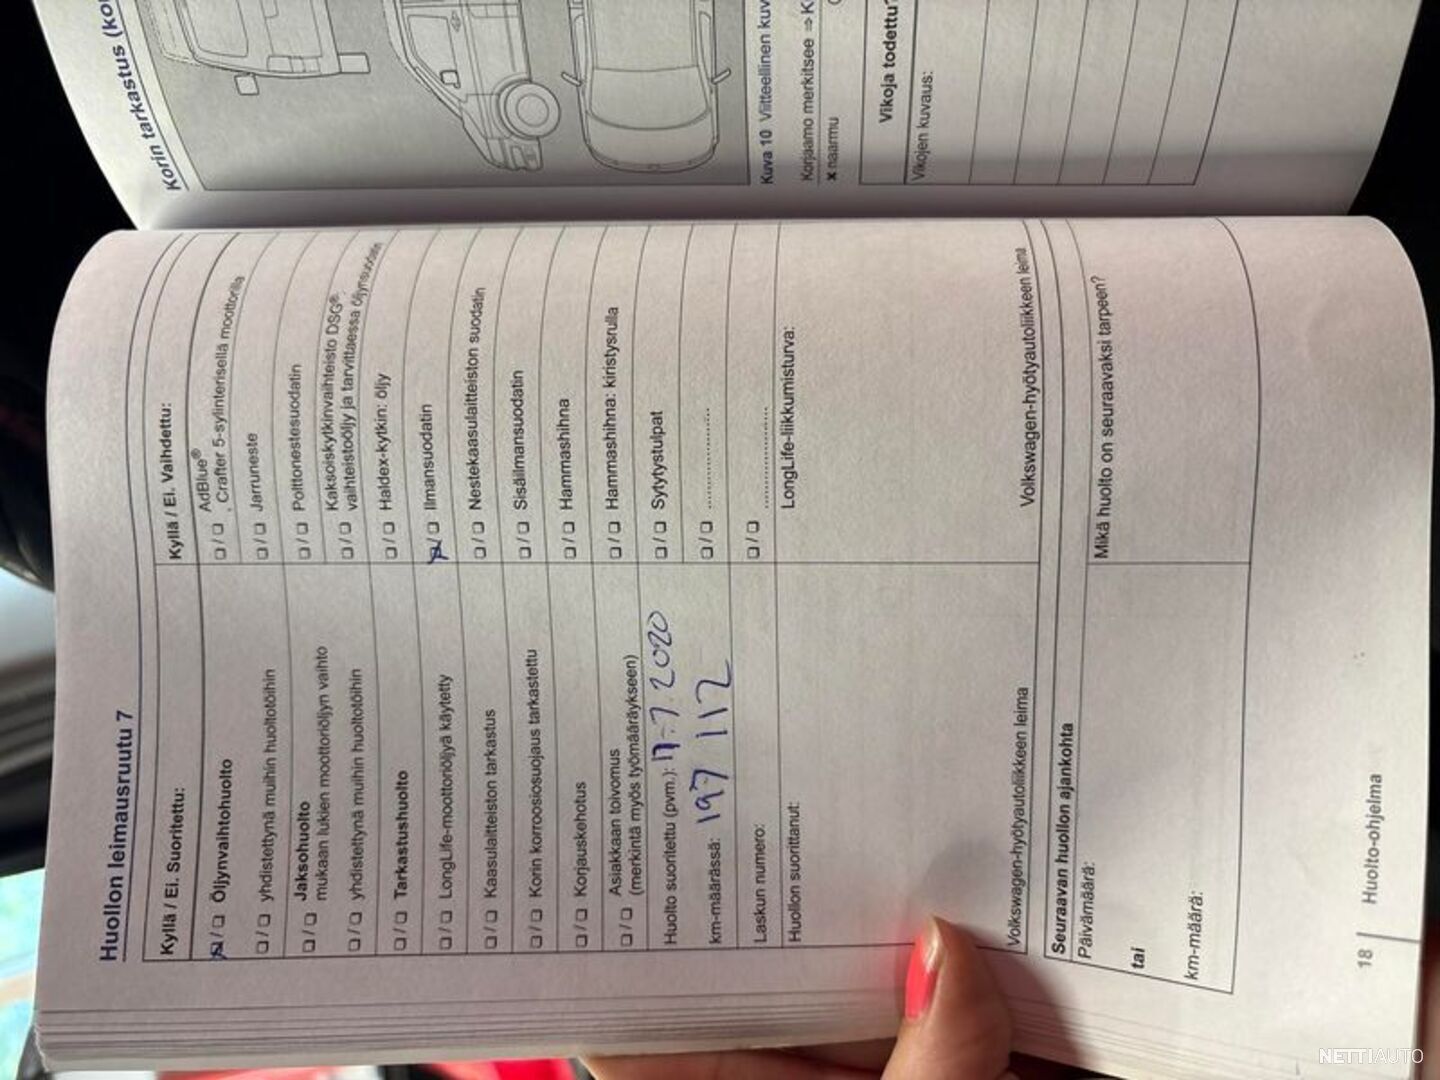 Huollon leimausruutu 7
Kyllä / Ei. Suoritettu:
❏ / ❏ Öljynvaihtohuolto
❏ / ❏ yhdistettynä muihin huoltotöihin
❏ / ❏ Jaksohuolto
mukaan lukien moottoriöljyn vaihto
❏ / ❏ yhdistettynä muihin huoltotöihin
❏ / ❏ Tarkastushuolto
❏ / ❏ LongLife-moottoriöljyä käytetty
❏ / ❏ Kaasulaitteiston tarkastus
❏ / ❏ Korin korroosiosuojaus tarkastettu
❏ / ❏ Korjauskehotus
❏ / ❏ Asiakkaan toivomus
(merkintä myös työmääräykseen)
Huolto suoritettu (pvm.): 17.7.2020
km-määrässä: 197 112
Laskun numero:
Huollon suorittanut:
Volkswagen-hyötyautoliikkeen leima
Kyllä / Ei. Vaihdettu:
❏ / ❏ AdBlue®
, Crafter 5-sylinterisellä moottorilla
❏ / ❏ Jarruneste
❏ / ❏ Polttonestesuodatin
❏ / ❏ Kaksoiskytkinvaihteisto DSG®:
vaihteistoöljy ja tarvittaessa öljynsuodatin
❏ / ❏ Haldex-kytkin: öljy
❏ / ❏ Ilmansuodatin
❏ / ❏ Nestekaasulaitteiston suodatin
❏ / ❏ Sisäilmansuodatin
❏ / ❏ Hammashihna
❏ / ❏ Hammashihna: kiristysrulla
❏ / ❏ Sytytystulpat
❏ / ❏ ......................
❏ / ❏ ......................
LongLife-liikkumisturva:
Volkswagen-hyötyautoliikkeen leima
Seuraavan huollon ajankohta
Päivämäärä:
tai
km-määrä:
Mikä huolto on seuraavaksi tarpeen?
18 | Huolto-ohjelma
Korin tarkastus
Kuva 10 Viitteellinen
Korjaamo merkitsee ⇒
x naarmu
Vikoja todettu?
Vikojen kuvaus:
NETTIAUTO